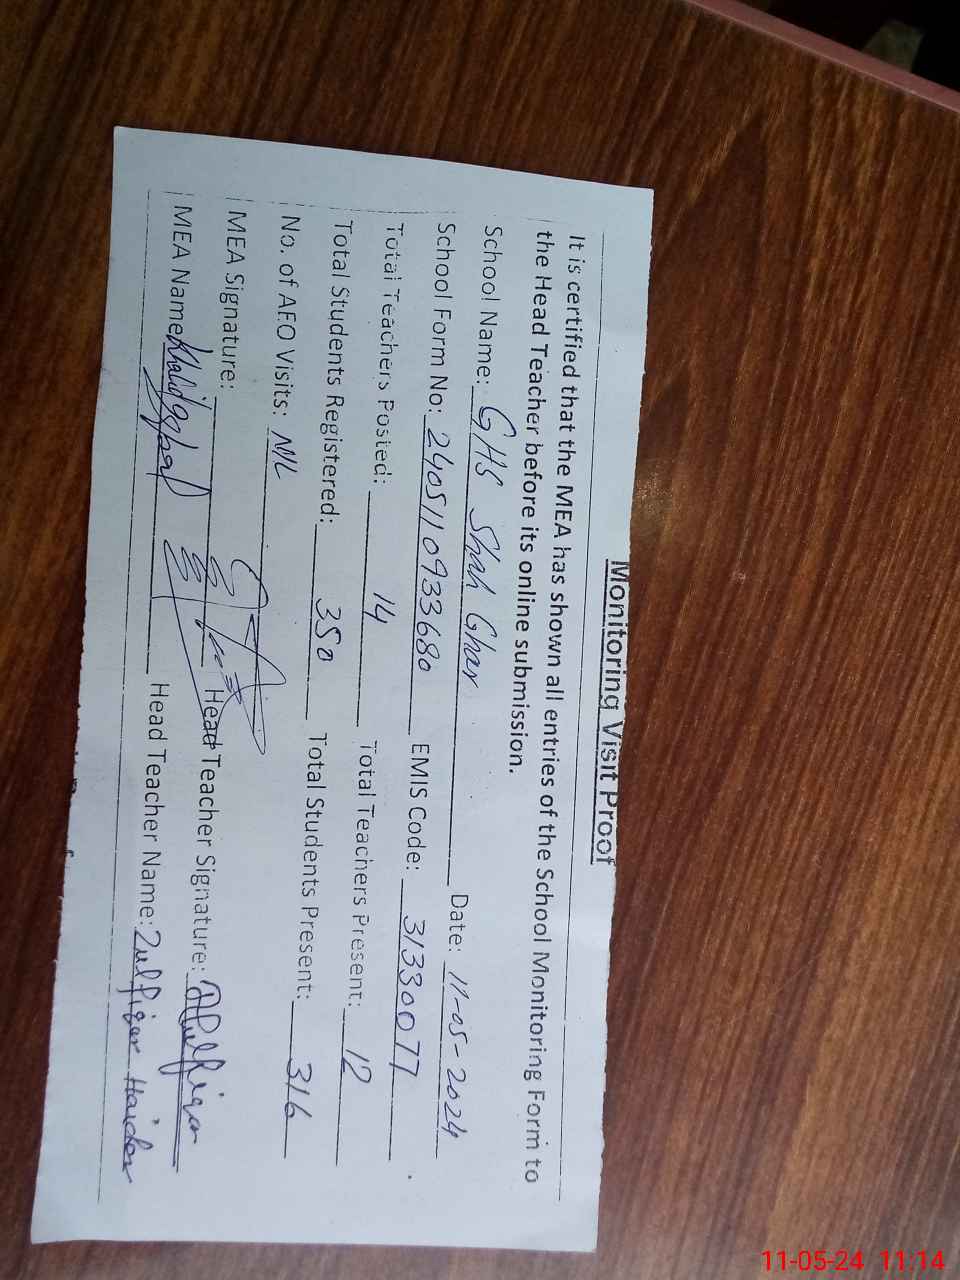 Monitoring Visit Proof
It is certified that the MEA has shown all entries of the School Monitoring Form to
the Head Teacher before its online submission.
School Name: GHS Shah Ghar Date: 11-05-2024
School Form No: 2405110933680 EMIS Code: 31330077
Total Teachers Posted: 14 Total Teachers Present: 12
Total Students Registered: 350 Total Students Present: 316
No. of AEO Visits: NIL
MEA Signature: Head Teacher Signature: Zulfiqar
MEA Name Khalid Iqbal Head Teacher Name: Zulfiqar Haider
11-05-24 11:14